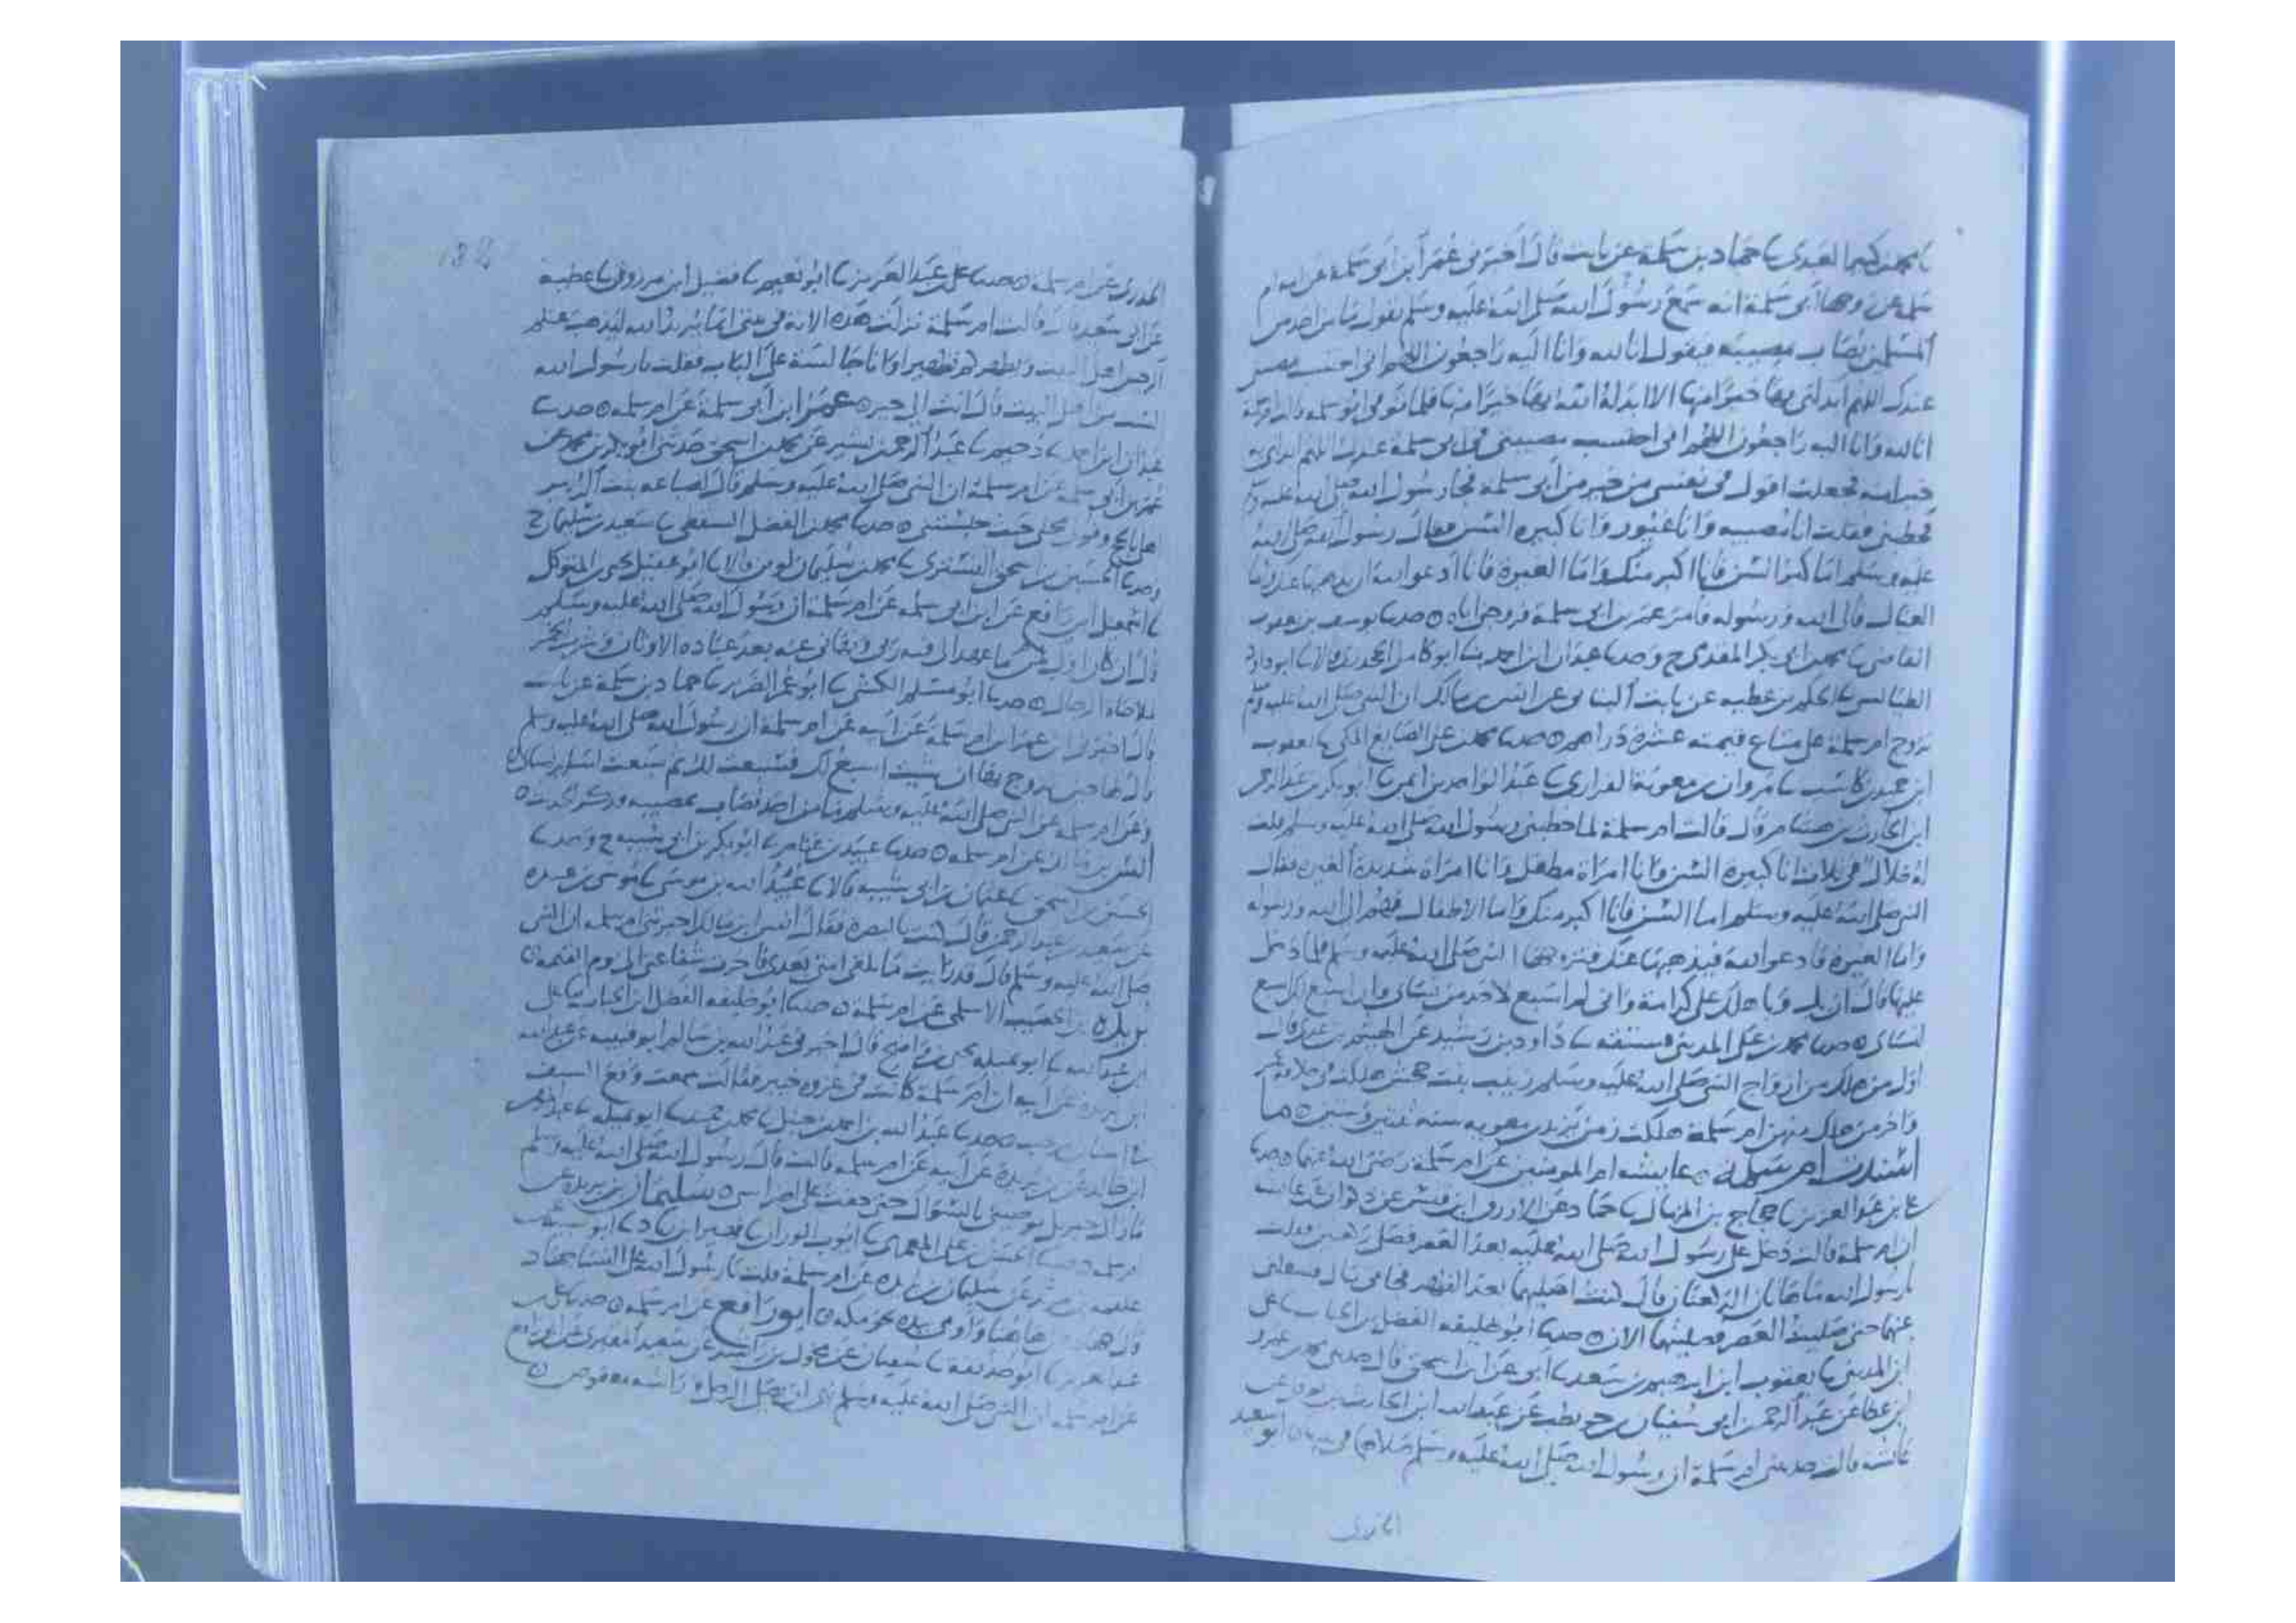 نا محمد بن كثير العبدي نا حماد بن سلمة عن ثابت قال اخبرني عمر ابن ابي سلمة عن امه ام
سلمة عن زوجها ابي سلمة انه سمع رسول الله صلى الله عليه وسلم يقول ما من احد من
المسلمين يصاب بمصيبة فيقول انا لله وانا اليه راجعون اللهم اني احتسب مصيبتي
عندك اللهم ابدلني بها خيرا منها الا ابدله الله بها خيرا منها فلما توفي ابو سلمة
انا لله وانا اليه راجعون اللهم اني احتسب مصيبتي في ابي سلمة عندك اللهم ابدلني
خيرا منه فجعلت اقول في نفسي من خير من ابي سلمة فجاء رسول الله صلى الله عليه
فخطبني فقلت انا مصبية وانا غيور وانا كبيرة السن فقال رسول الله صلى الله
عليه وسلم اما كبر السن فانا اكبر منك واما الغيرة فانا ادعوا الله ان يذهبها عنك واما
العيال فالى الله ورسوله فامر عمر بن ابي سلمة فزوجها اياه حدثنا يوسف بن يعقوب
القاضي نا محمد بن ابي بكر المقدمي ح وحدثنا عبدان ابن احمد نا ابو كامل الجحدري قالا نا ابو داود
الطيالسي نا الحكم بن عطية عن ثابت البناني عن انس بن مالك ان النبي صلى الله عليه وسلم
تزوج ام سلمة على متاع قيمته عشرة دراهم حدثنا محمد بن علي الصايغ المكي نا يعقوب
ابن حميد بن كاسب نا مروان بن معوية الفزاري نا عبد الواحد بن ايمن نا ابو بكر بن عبد الرحمن
ابن الحارث بن هشام قال قالت ام سلمة لما خطبني رسول الله صلى الله عليه وسلم قلت
له خلال في ثلاث انا كبيرة السن وانا امراة مطفل وانا امراة شديدة الغيرة فقال
النبي صلى الله عليه وسلم اما السن فانا اكبر منك واما الاطفال فهم الى الله ورسوله
واما الغيرة فادعو الله فيذهبها عنك فتزوجها النبي صلى الله عليه وسلم فلما دخل
عليها قال ان بك على كرامة واني لم اسبع لاحد من نساي وان اسبع لك اسبع
لنساي حدثنا محمد بن علي المديني فستقه نا داود بن رشيد عن الهيثم بن عدي قال
اول من هلك من ازواج النبي صلى الله عليه وسلم زينب بنت جحش هلكت في خلافة عمر
واخر من هلك منهن ام سلمة هلكت زمن يزيد بن معوية سنة ثنتين وستين ما
اسندت ام سلمة عايشة ام المومنين عن ام سلمة رضي الله عنها حدثنا
علي بن عبد العزيز نا حجاج بن المنهال نا حماد عن الازرق ابن قيس عن ذكوان عن عايشة
ان ام سلمة قالت دخل علي رسول الله صلى الله عليه بعد العصر فصلى ركعتين فقلت
يارسول الله ما هاتان الركعتان قال كنت اصليهما بعد الظهر فجاءني مال فشغلني
عنهما حتى صليت العصر فصليتهما الان حدثنا ابو خليفة الفضل بن الحباب نا علي
ابن المديني نا يعقوب ابن ابرهيم بن سعد نا ابي عن ابن اسحق قال حدثني محمد بن عمرو
ابن عطا عن عبد الرحمن ابن ابي سفيان بن حويطب عن عبد الله ابن الحارث بن نوفل عن
عائشة قالت حدثتني ام سلمة ان رسول الله صلى الله عليه وسلم صلاها في بيتها ابو سعيد
الخدري
الخدري عن ام سلمة حدثنا علي بن عبد العزيز نا ابو نعيم نا فضيل ابن مرزوق نا عطية
عن ابي سعيد قال قالت ام سلمة نزلت هذه الاية في بيتي انما يريد الله ليذهب عنكم
الرجس اهل البيت ويطهركم تطهيرا وانا جالسة على الباب فقلت يا رسول الله
الست من اهل البيت قال انت الى خير عمر ابن ابي سلمة عن ام سلمة حدثنا
عبدان ابن احمد نا دحيم نا عبد الرحمن بن بشير عن محمد بن اسحق حدثني ابو بكر بن محمد عن
عمر بن ابي سلمة عن ام سلمة ان النبي صلى الله عليه وسلم قال لضباعة بنت الزبير
اهلي بالحج وقولي محلي حيث حبستني حدثنا محمد بن الفضل السقطي نا سعيد بن سليمان ح
وحدثنا الحسين بن اسحق التستري نا محمد بن سليمان لوين قالا نا ابو عقيل يحيى بن المتوكل
نا اسمعيل ابن رافع عن ابن ابي سلمة عن ام سلمة ان رسول الله صلى الله عليه وسلم
قال ان كان اول ما عهد الي فيه ربي ونهاني عنه بعد عبادة الاوثان وشرب الخمر
لملاحاة الرجال حدثنا ابو مسلم الكشي نا ابو عمر الضرير نا حماد بن سلمة عن ثابت
قال اخبرني ابن عمر ابن ام سلمة عن ابيه عن ام سلمة ان رسول الله صلى الله عليه وسلم
قال لها حين تزوج بها ان شيت اسبع لك فسبعت لك ثم سبعت لساير نساي
وعن ام سلمة عن النبي صلى الله عليه وسلم ما من احد يصاب بمصيبة وذكر الحديث
انس بن مالك عن ام سلمة حدثنا عبيد بن غنام نا ابو بكر بن ابي شيبة ح وحدثنا
الحسين بن اسحق نا عثمان بن ابي شيبة قالا نا عبيد الله بن موسى نا موسى بن عبيدة
عن سعيد بن عبد الرحمن قال كنت بالبصرة فقال انس ابن مالك اخبرتني ام سلمة ان النبي
صلى الله عليه وسلم قال قد رايت ما تلقى امتي بعدي فاخرت شفاعتي الى يوم القيمة
بريدة بن الحصيب الاسلمي عن ام سلمة حدثنا ابو خليفة الفضل ابن الحباب نا علي
ابن عبد الله نا ابو تميلة يحيى بن واضح قال اخبرني عبد الله بن عن عبد الله
ابن بريدة عن ابيه ان ام سلمة كانت في غزوة خيبر فقالت سمعت وقع السيف
في اسنان مرحب حدثنا عبد الله بن احمد بن حنبل نا محمد بن حميد نا ابو تميلة نا عبد المومن
ابن خالد عن بن بريدة عن ابيه عن ام سلمة قالت قال رسول الله صلى الله عليه وسلم
ما زال جبريل يوصيني بالسواك حتى خفت على اضراسي سليمان بن بريدة عن
ام سلمة حدثنا
علقمة بن مرثد عن سليمان بن بريدة عن ام سلمة قلت يا رسول الله على النساء جهاد
ابو رافع عن ام سلمة حدثنا علي بن
عبد العزيز نا ابو حذيفة نا سفيان عن مخول بن راشد عن سعيد المقبري عن ابي رافع
عن ام سلمة ان النبي صلى الله عليه وسلم نهى ان يصلي الرجل وراسه معقوص